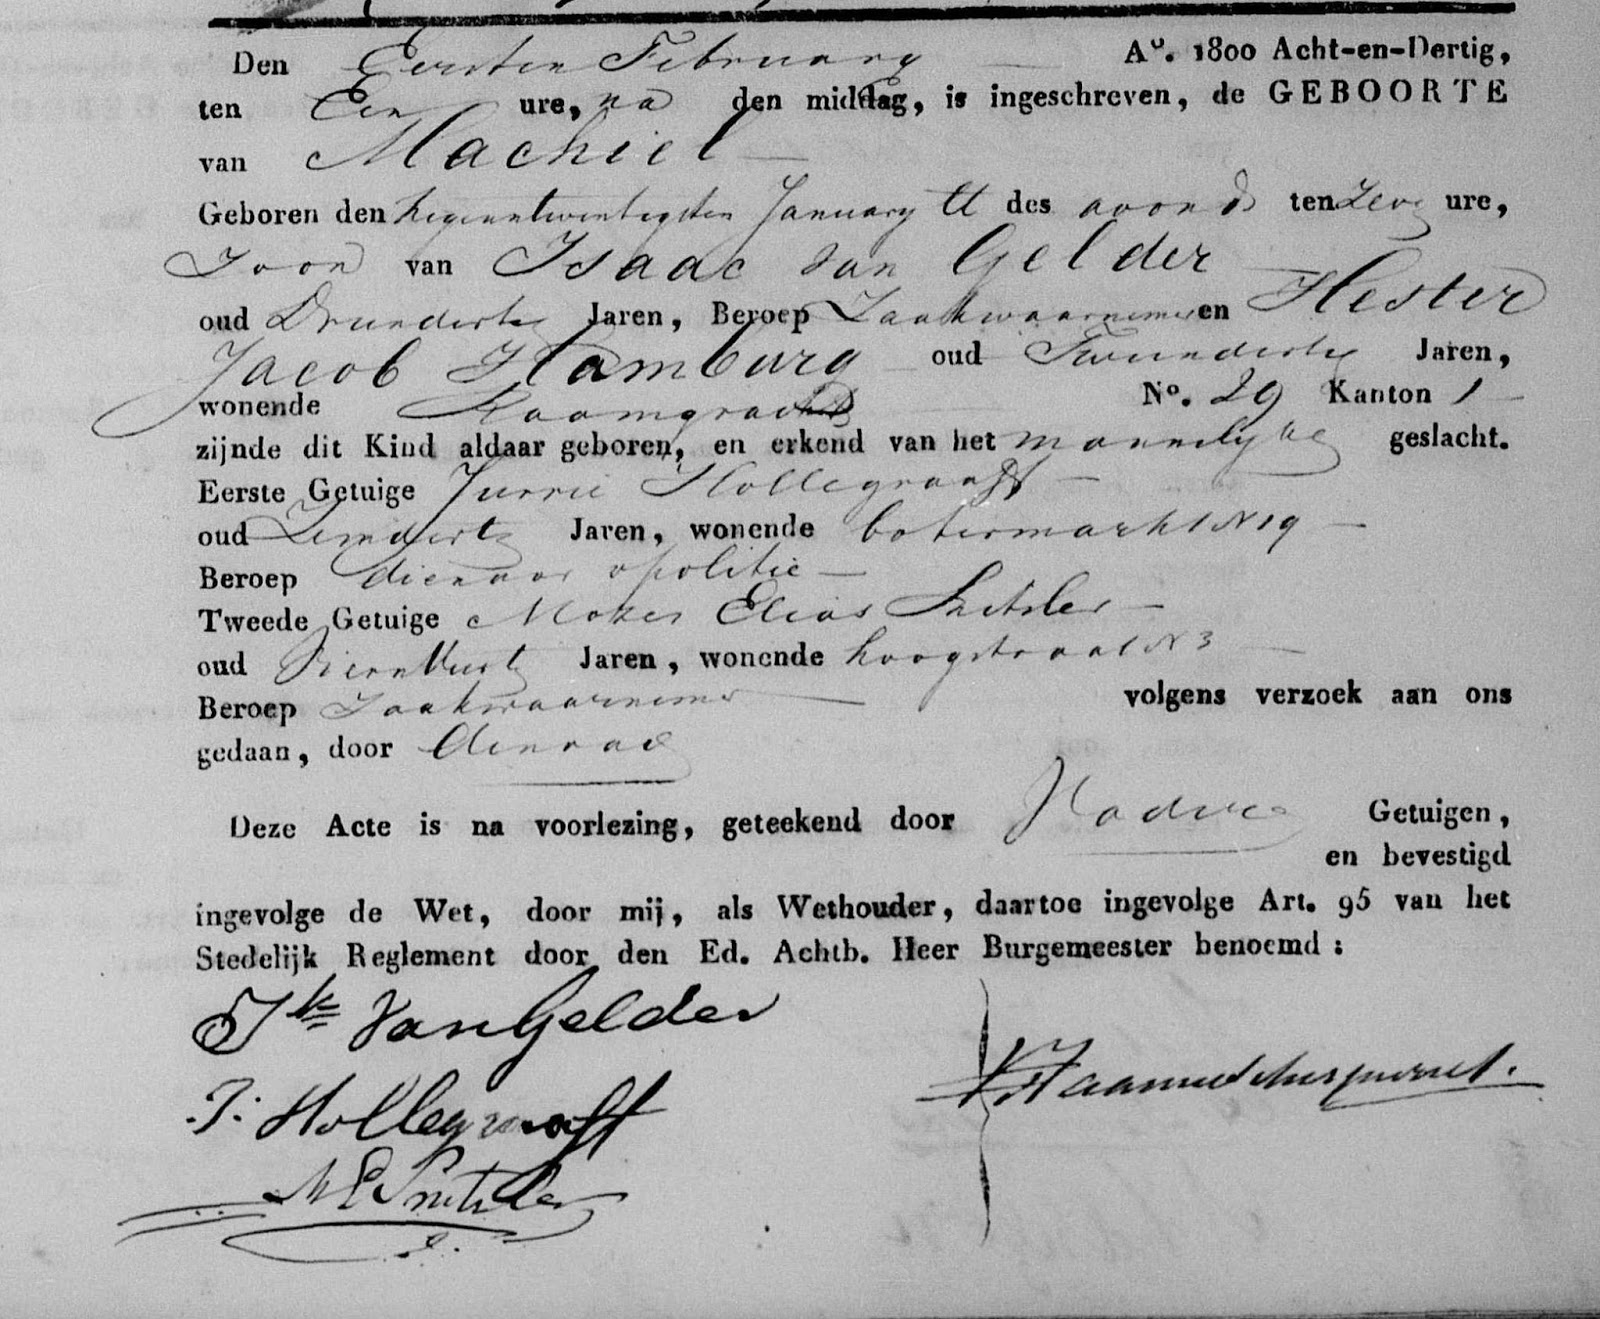 Den Eersten February A°. 1800 Acht-en-Dertig,
ten Een ure, na den middag, is ingeschreven, de GEBOORTE
van Machiel
Geboren den Negenentwentigsten January ll des avonds ten Zeve ure,
Zoon van Isaac van Gelder
oud Drieendertig Jaren, Beroep Zaakwaarnemer en Hester
Jacob Hamburg oud Tweendertig Jaren,
wonende Raamgracht N°. 29 Kanton 1
zijnde dit Kind aldaar geboren, en erkend van het mannelyke geslacht.
Eerste Getuige Jurrie Hollegraaff
oud Jaren, wonende botermarkt N 19
Beroep dienaar v politie
Tweede Getuige Mozes Elias Snitsler
oud Jaren, wonende hoogstraat N 3
Beroep Zaakwaarnemer volgens verzoek aan ons
gedaan, door
Deze Acte is na voorlezing, geteekend door Getuigen,
en bevestigd
ingevolge de Wet, door mij, als Wethouder, daartoe ingevolge Art. 95 van het
Stedelijk Reglement door den Ed. Achtb. Heer Burgemeester benoemd:
Van Gelder
J. Hollegraaff
M E Snitsler